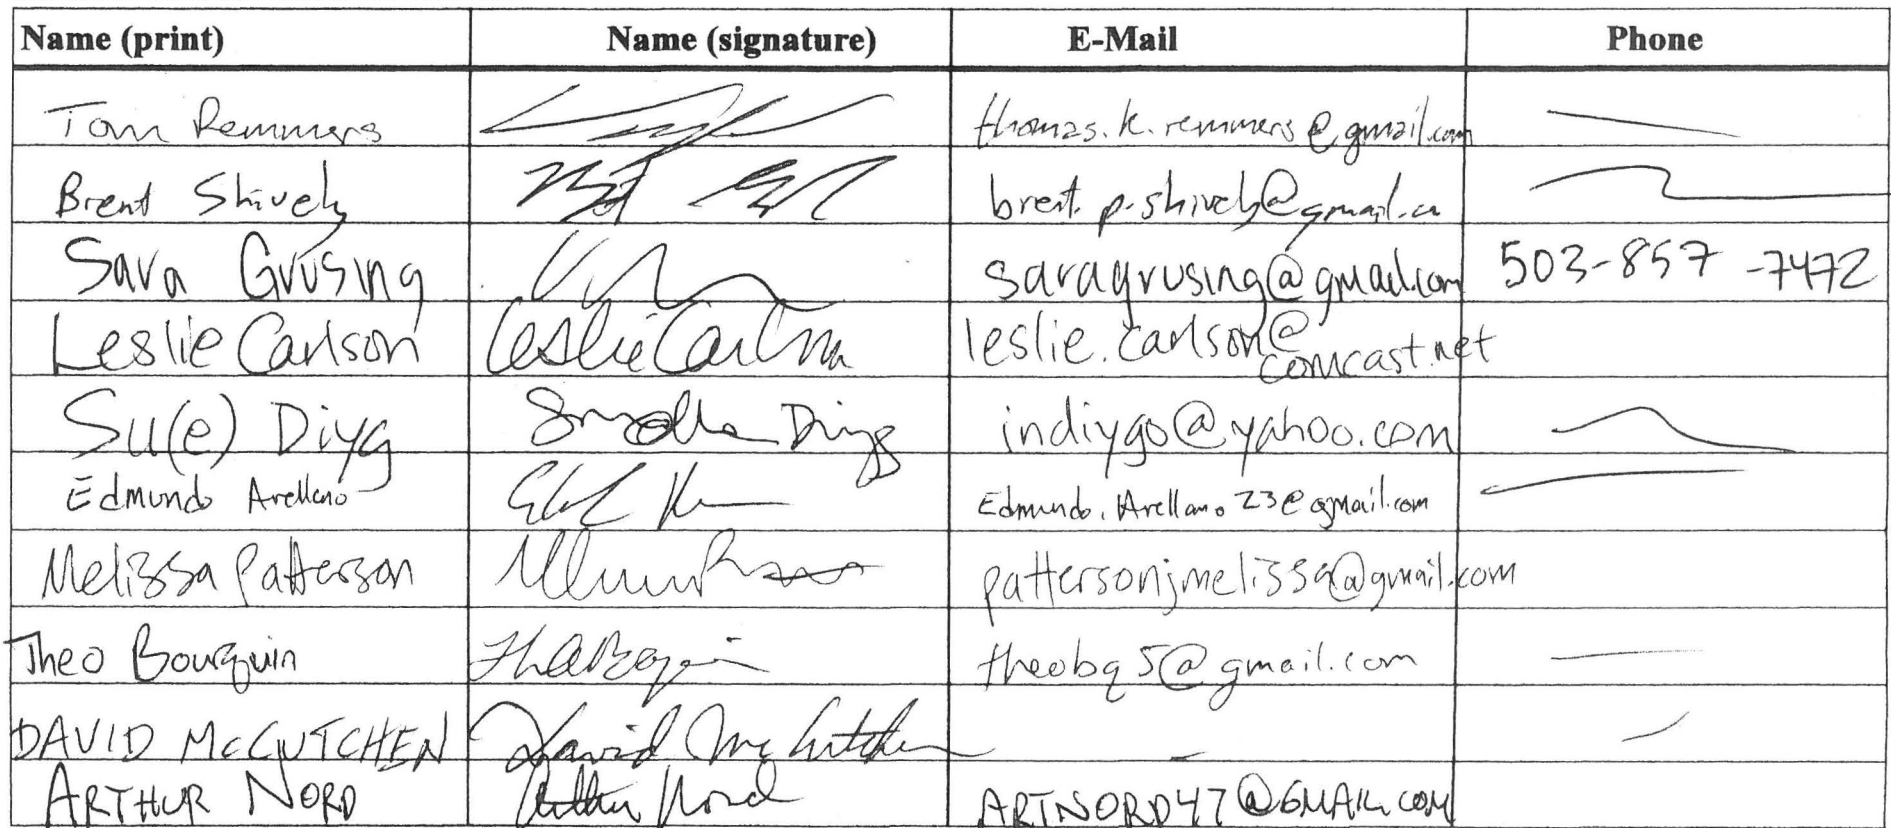 Name (print) Name (signature) E-Mail Phone
Tom Remmers thomas.k.remmers@gmail.com
Brent Shively brent.p.shively@gmail.com
Sara Grusing saragrusing@gmail.com 503-857-7472
Leslie Carlson Leslie Carlson leslie.carlson@
comcast.net
Su(e) Diyg indiygo@yahoo.com
Edmundo Arellano Edmundo.Arellano23@gmail.com
Melissa Patterson pattersonjmelissa@gmail.com
Theo Bourquin theobq5@gmail.com
DAVID McCUTCHEN David McCutchen
ARTHUR NORD Arthur Nord ARTNORD47@GMAIL.COM